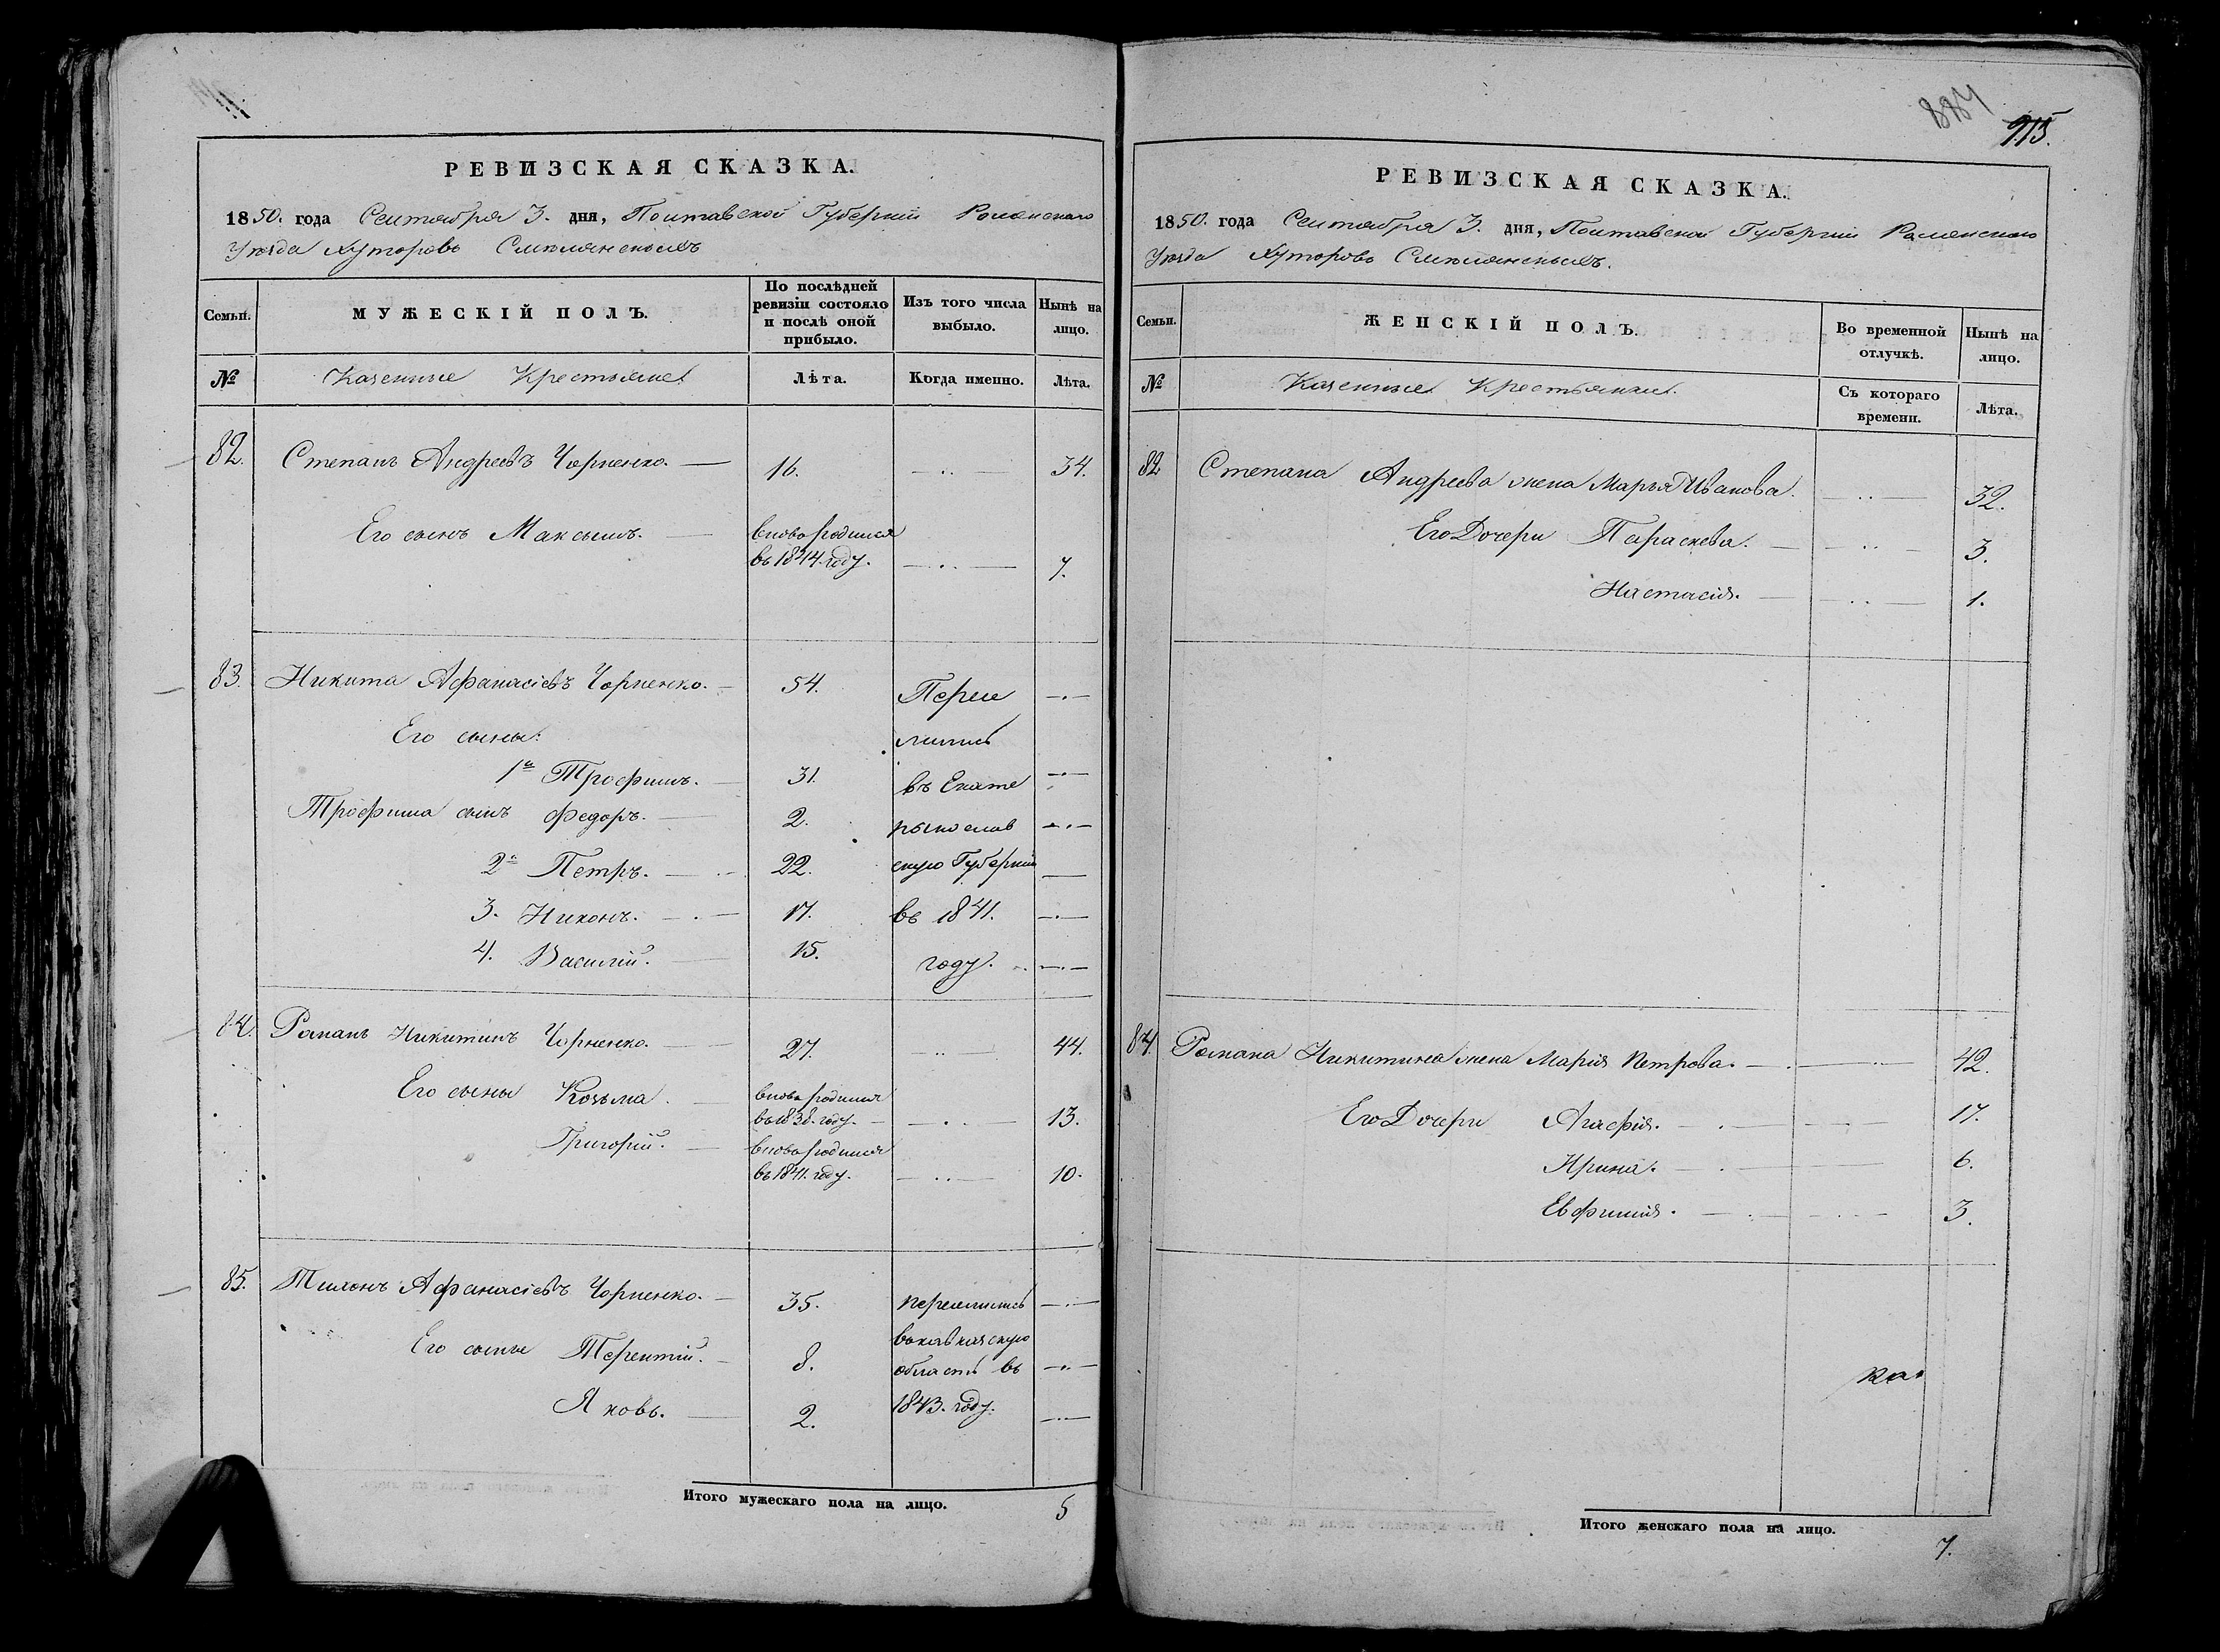 РЕВИЗСКАЯ СКАЗКА.
1850. года Сентября 3. дня, Полтавской Губернии Роменскаго
Уезда Хуторовъ Смѣлянскихъ
Семьи.
МУЖЕСКІЙ ПОЛЪ.
По послѣдней ревизіи состояло и послѣ оной прибыло.
Изъ того числа выбыло.
Нынѣ на лицо.
№
Казенные Крестьяне.
Лѣта.
Когда именно.
Лѣта.
82. Степанъ Андреевъ Чорненко. 16. 34.
Его сынъ Максимъ. вновь родился
въ 1844. году. 7.
83. Никита Афанасіевъ Чорненко. 54. Пересе
Его сыны: лились
1й Трофимъ. 31. въ Екате
Трофима сынъ Федоръ. 2.ринослав
2й Петръ. 22. скую Губернію
3. Никонъ. 17. въ 1841.
4. Василій. 15. году.
84. Романъ Никитинъ Чорненко. 27. 44.
Его сыны Козьма. вновь родился
въ 1838. году. 13.
Григорій. вновь родился
въ 1841. году. 10.
85. Афанасіевъ Чорненко. 35. переселились
Его сыны Терентій. 8. въ кавказскую
область въ
Яковъ. 2. 1843. году.
Итого мужескаго пола на лицо. 5
884
915.
РЕВИЗСКАЯ СКАЗКА.
1850. года Сентября 3. дня, Полтавской Губернии Роменскаго
Уезда Хуторовъ Смѣлянскихъ.
Семьи.
ЖЕНСКІЙ ПОЛЪ.
Во временной отлучкѣ.
Нынѣ на лицо.
№
Казенные Крестьянки.
Съ котораго времени.
Лѣта.
82 Степана Андреева жена Марья Иванова. 32.
Его Дочери Параскева. 3.
Настасія. 1.
84. Романа Никитина жена Марія Петрова. 42.
Его Дочери Агафія. 17.
Ирина. 6.
Евфимія. 3.
Итого женскаго пола на лицо. 7.